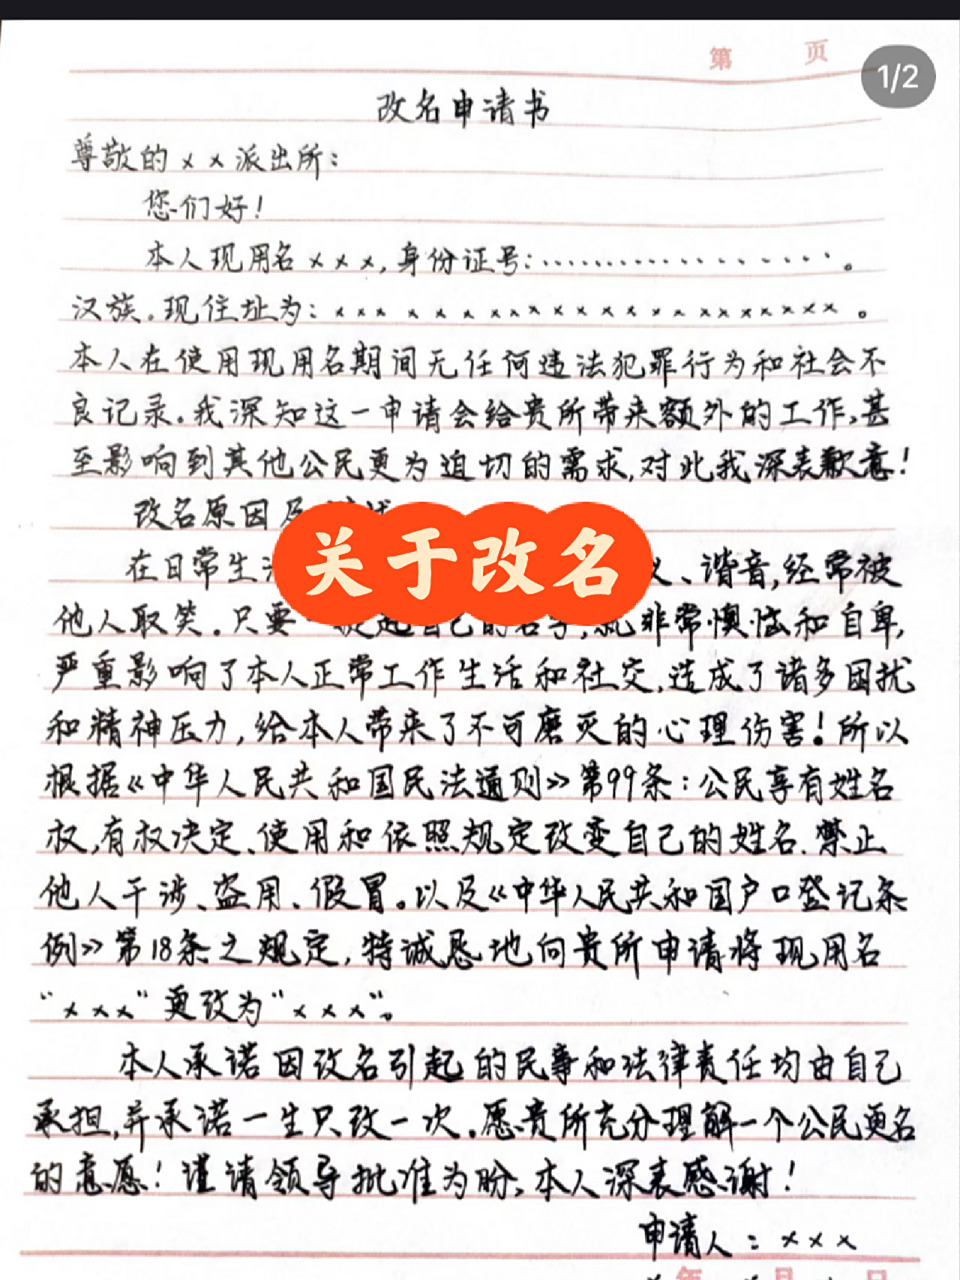 第 页
1/2
改名申请书
尊敬的××派出所：
您们好！
本人现用名×××,身份证号:………………。
汉族.现住址为:×××××××××××××××××××。
本人在使用现用名期间无任何违法犯罪行为和社会不
良记录.我深知这一申请会给贵所带来额外的工作,甚
至影响到其他公民更为迫切的需求,对此我深表歉意！
改名原因及
关于改名
在日常生 、谐音,经常被
他人取笑.只要一提起自己的名字,就非常懊恼和自卑,
严重影响了本人正常工作生活和社交,造成了诸多困扰
和精神压力,给本人带来了不可磨灭的心理伤害！所以
根据《中华人民共和国民法通则》第99条:公民享有姓名
权,有权决定、使用和依照规定改变自己的姓名.禁止
他人干涉、盗用、假冒。以及《中华人民共和国户口登记条
例》第18条之规定,特诚恳地向贵所申请将现用名
“×××”更改为“×××”。
本人承诺因改名引起的民事和法律责任均由自己
承担,并承诺一生只改一次.愿贵所充分理解一个公民更名
的意愿！谨请领导批准为盼,本人深表感谢！
申请人：×××
年 月 日